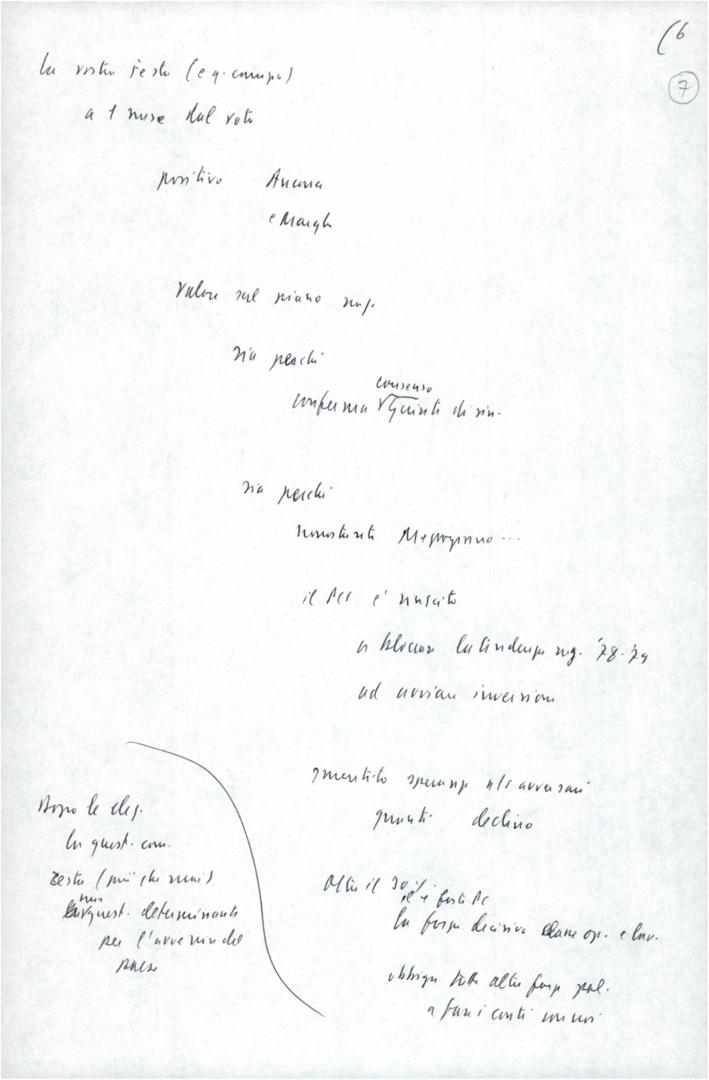 (6
7
La vostra festa (e q. campo)
a 1 mese dal voto
positivo Ancona
e Marche
Valore sul piano naz.
sia perché
consenso
conferma giunte di sin.
sia perché
nonostante Mezzogiorno...
il PCI è riuscito
a bloccare la tendenza neg. '78-'79
ad avviare inversione
smentito speranze n/s avversari
declino
Dopo le elez.
la quest. com.
resta (più che mai)
una quest. determinante
per l'avvenire del
paese
Oltre il 30%
il + forte PC
la forza decisiva classe op. e lav.
obbliga tutte altre forze pol.
a fare i conti con noi